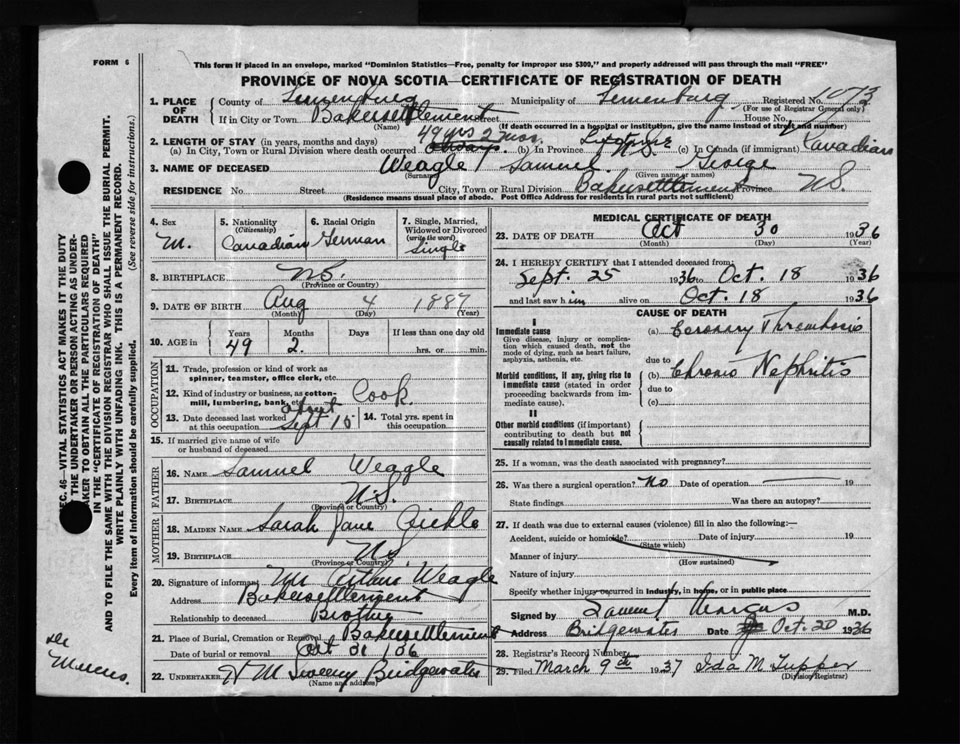 FORM 6
This form if placed in an envelope, marked "Dominion Statistics—Free, penalty for improper use $300," and properly addressed will pass through the mail "FREE"
PROVINCE OF NOVA SCOTIA—CERTIFICATE OF REGISTRATION OF DEATH
1. PLACE OF DEATH County of Lunenburg Municipality of Lunenburg Registered No. 1073
(For use of Registrar General only)
If in City or Town Bakersettlement Street House No.
(Name) (If death occurred in a hospital or institution, give the name instead of street and number)
49 yrs 2 mos.
2. LENGTH OF STAY (in years, months and days)
(a) In City, Town or Rural Division where death occurred (b) In Province Lifetime (c) In Canada (if immigrant) Canadian
N.S.
3. NAME OF DECEASED Weagle Samuel George
(Surname) (Given name or names)
RESIDENCE No. Street City, Town or Rural Division Bakersettlement Province N.S.
(Residence means usual place of abode. Post Office Address for residents in rural parts not sufficient)
4. Sex M.
5. Nationality (Citizenship) Canadian
6. Racial Origin German
7. Single, Married, Widowed or Divorced (write the word) Single
8. BIRTHPLACE N.S.
(Province or Country)
9. DATE OF BIRTH Aug 4 1887
(Month) (Day) (Year)
10. AGE Years 49 Months 2. Days If less than one day old hrs. or min.
OCCUPATION
11. Trade, profession or kind of work as spinner, teamster, office clerk, etc.
12. Kind of industry or business, as cotton-mill, lumbering, bank, etc. Cook.
13. Date deceased last worked at this occupation about Sept 15
14. Total yrs. spent in this occupation
15. If married give name of wife or husband of deceased
FATHER
16. NAME Samuel Weagle
17. BIRTHPLACE N.S.
(Province or Country)
MOTHER
18. MAIDEN NAME Sarah Jane
19. BIRTHPLACE N.S.
(Province or Country)
20. Signature of informant Weagle
Address Bakersettlement
Relationship to deceased Brother
21. Place of Burial, Cremation or Removal Bakersettlement
Date of burial or removal Oct 31/36
22. UNDERTAKER Bridgewater
(Name and address)
MEDICAL CERTIFICATE OF DEATH
23. DATE OF DEATH Oct 30 1936
(Month) (Day) (Year)
24. I HEREBY CERTIFY that I attended deceased from:
Sept. 25 1936 to Oct. 18 1936
and last saw him alive on Oct. 18 1936
CAUSE OF DEATH
I
Immediate cause
Give disease, injury or complication which caused death, not the mode of dying, such as heart failure, asphyxia, asthenia, etc.
(a) Coronary Thrombosis
due to
Morbid conditions, if any, giving rise to immediate cause (stated in order proceeding backwards from immediate cause).
(b) Chronic Nephritis
due to
(c)
II
Other morbid conditions (if important) contributing to death but not causally related to immediate cause.
25. If a woman, was the death associated with pregnancy?
26. Was there a surgical operation? No Date of operation 19
State findings Was there an autopsy?
27. If death was due to external causes (violence) fill in also the following:—
Accident, suicide or homicide? Date of injury 19
(State which)
Manner of injury
(How sustained)
Nature of injury
Specify whether injury occurred in industry, in home, or in public place
Signed by Marcus M.D.
Address Bridgewater Date Oct. 20 1936
28. Registrar's Record Number
29. Filed March 9th 1937 Ida M Tupper
(Division Registrar)
SEC. 46—VITAL STATISTICS ACT MAKES IT THE DUTY
OF THE UNDERTAKER OR PERSON ACTING AS UNDER-
TAKER TO OBTAIN ALL THE PARTICULARS REQUIRED
IN THE "CERTIFICATE OF REGISTRATION OF DEATH"
AND TO FILE THE SAME WITH THE DIVISION REGISTRAR WHO SHALL ISSUE THE BURIAL PERMIT.
WRITE PLAINLY WITH UNFADING INK. THIS IS A PERMANENT RECORD.
Every item of information should be carefully supplied. (See reverse side for instructions.)
Marcus.